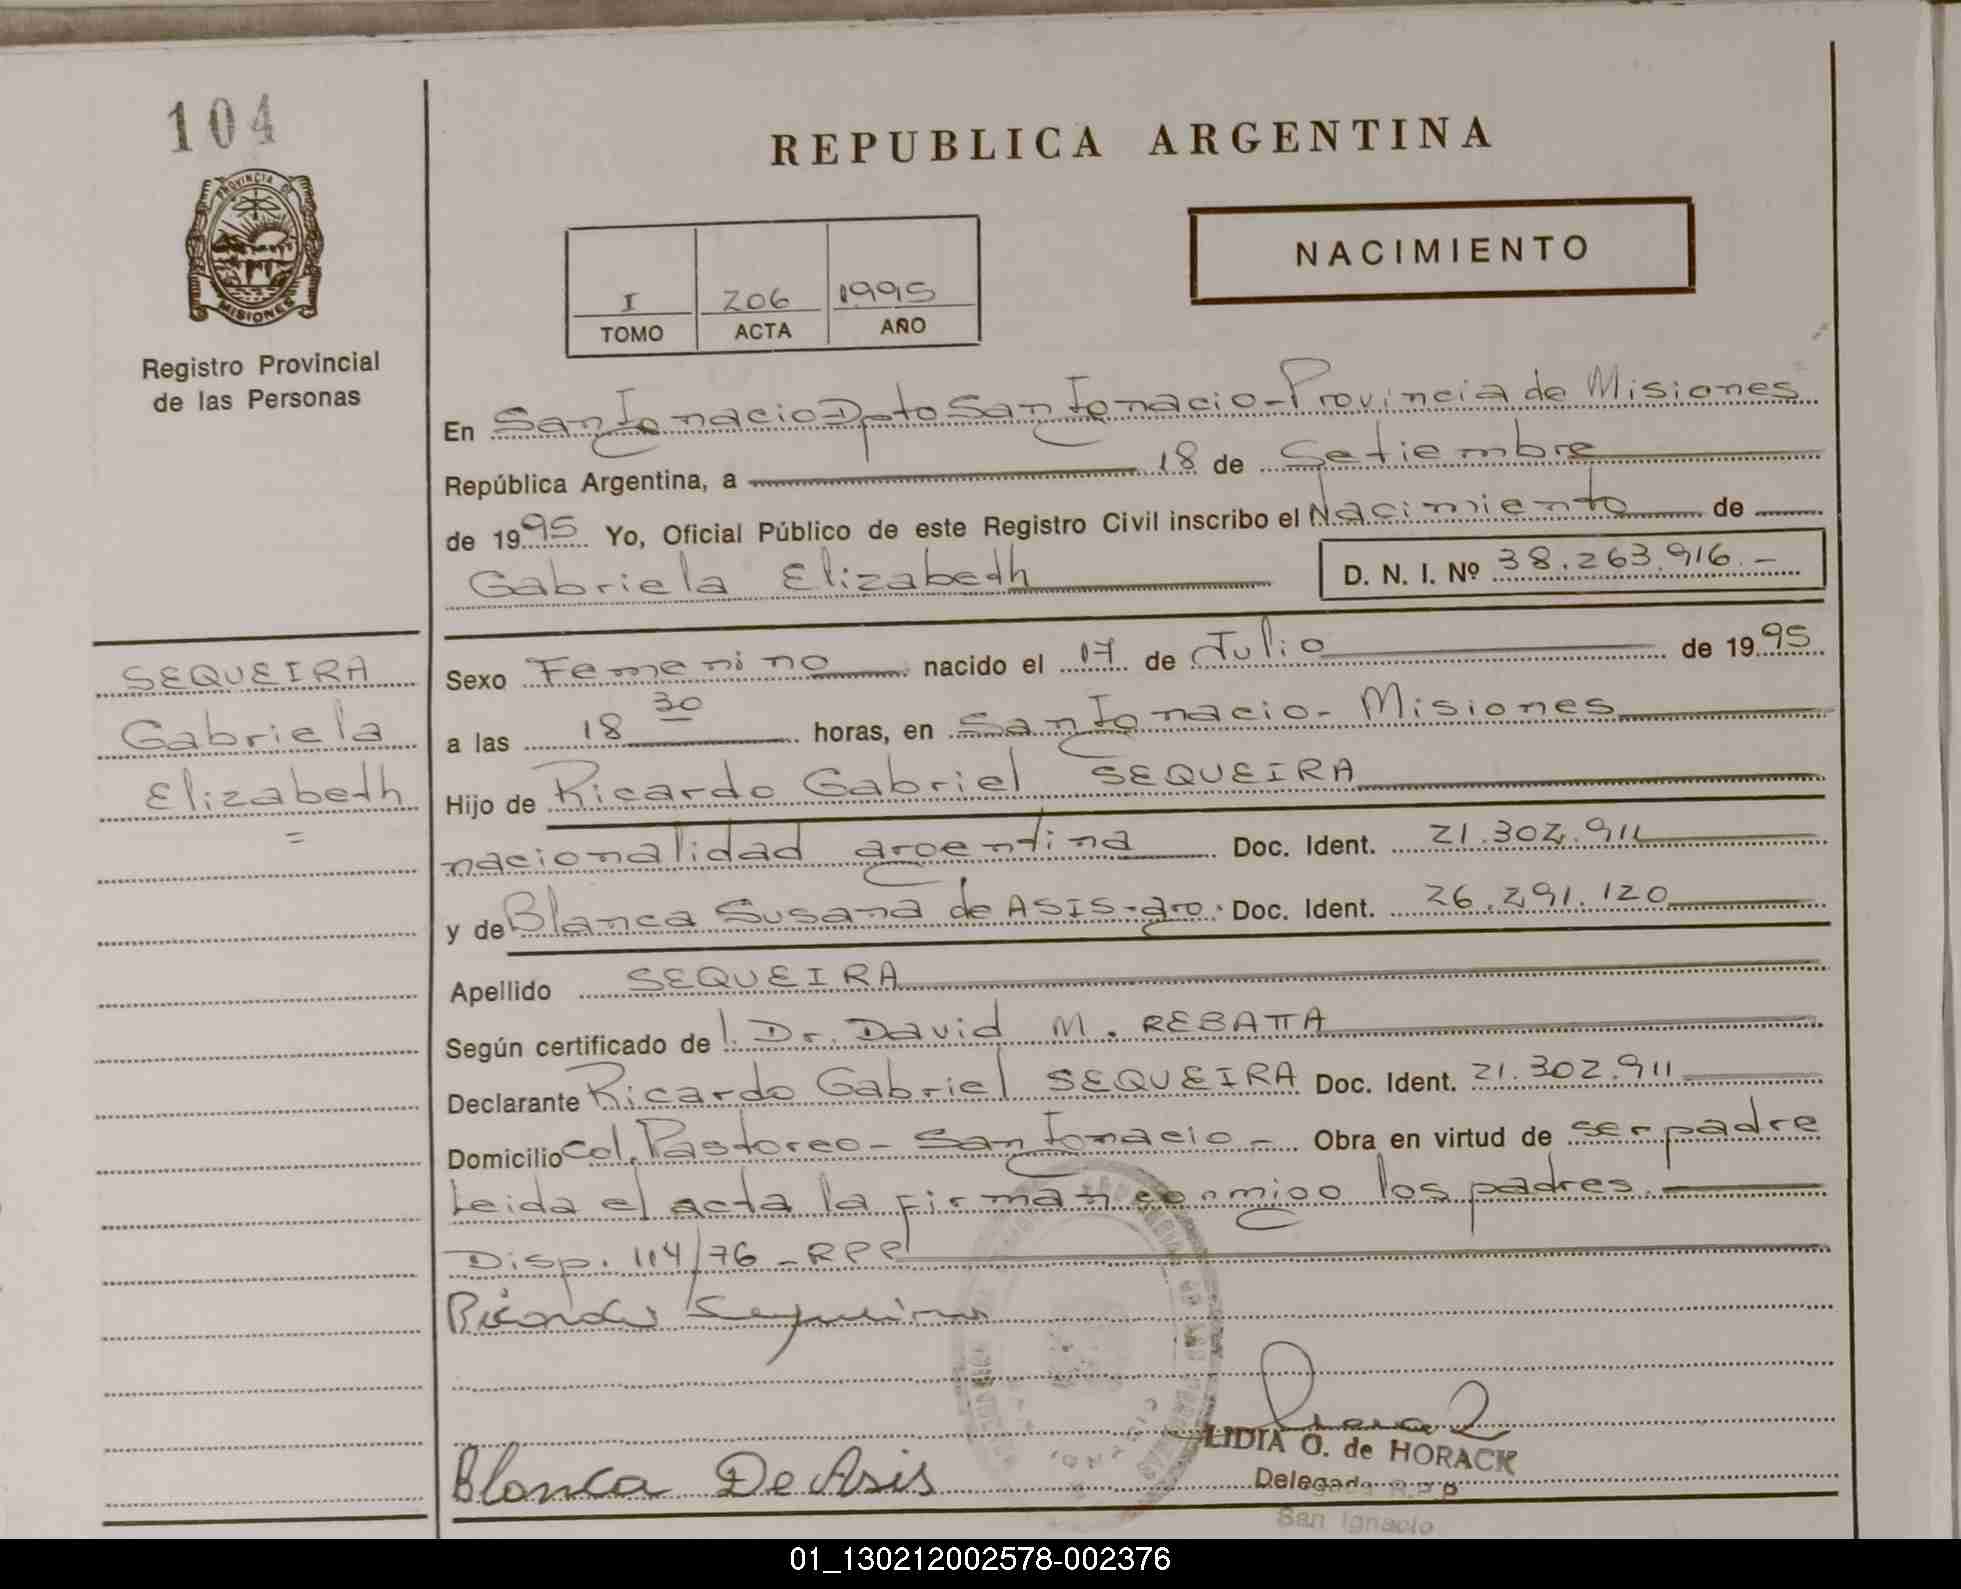 104
REPUBLICA ARGENTINA
PROVINCIA DE
MISIONES
NACIMIENTO
I 206 1995
TOMO ACTA AÑO
Registro Provincial
de las Personas
En San Ignacio Dpto San Ignacio - Provincia de Misiones
República Argentina, a 18 de Setiembre
de 1995 Yo, Oficial Público de este Registro Civil inscribo el Nacimiento de
Gabriela Elizabeth D. N. I. Nº 38.263.916.-
SEQUEIRA
Gabriela
Elizabeth
=
Sexo Femenino nacido el 17 de Julio de 1995
a las 18 30 horas, en San Ignacio - Misiones
Hijo de Ricardo Gabriel SEQUEIRA
nacionalidad argentina Doc. Ident. 21.302.911
y de Blanca Susana de ASIS - arg. Doc. Ident. 26.291.120
Apellido SEQUEIRA
Según certificado de l. Dr. David M. REBATTA
Declarante Ricardo Gabriel SEQUEIRA Doc. Ident. 21.302.911
Domicilio Col. Pastoreo - San Ignacio - Obra en virtud de ser padre
Leida el acta la firman conmigo los padres.
Disp. 114/76 - RPP
Ricardo Sequeira
LIDIA O. de HORACK
Blanca De Asis
Delegada R.P.P
San Ignacio
01_130212002578-002376